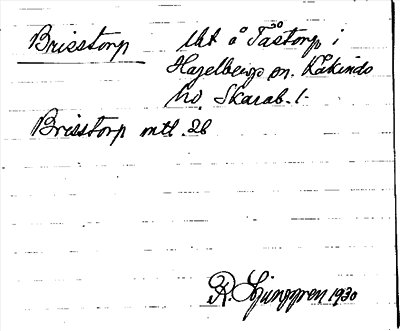 Brisstorp
Ukt å Tåstorp i
Hagelbergs sn. Kåkinds
hd. Skarab. l.
Brisstorp mtl. 2b
R. Ljunggren 1930